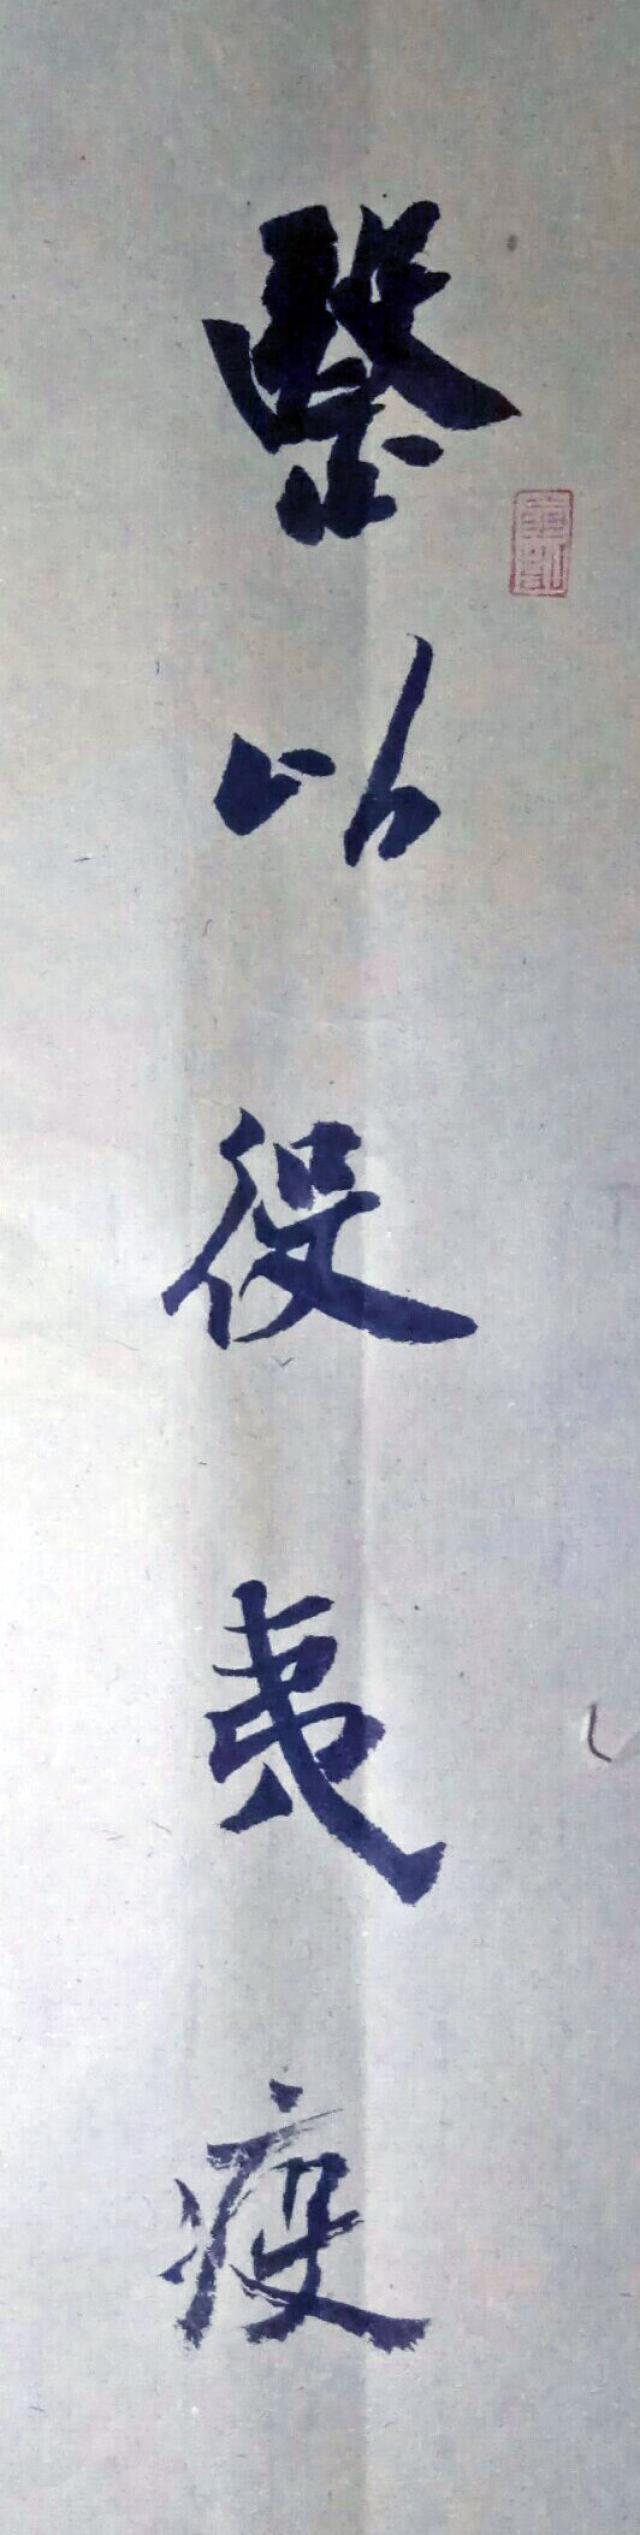 繄以役夷疫